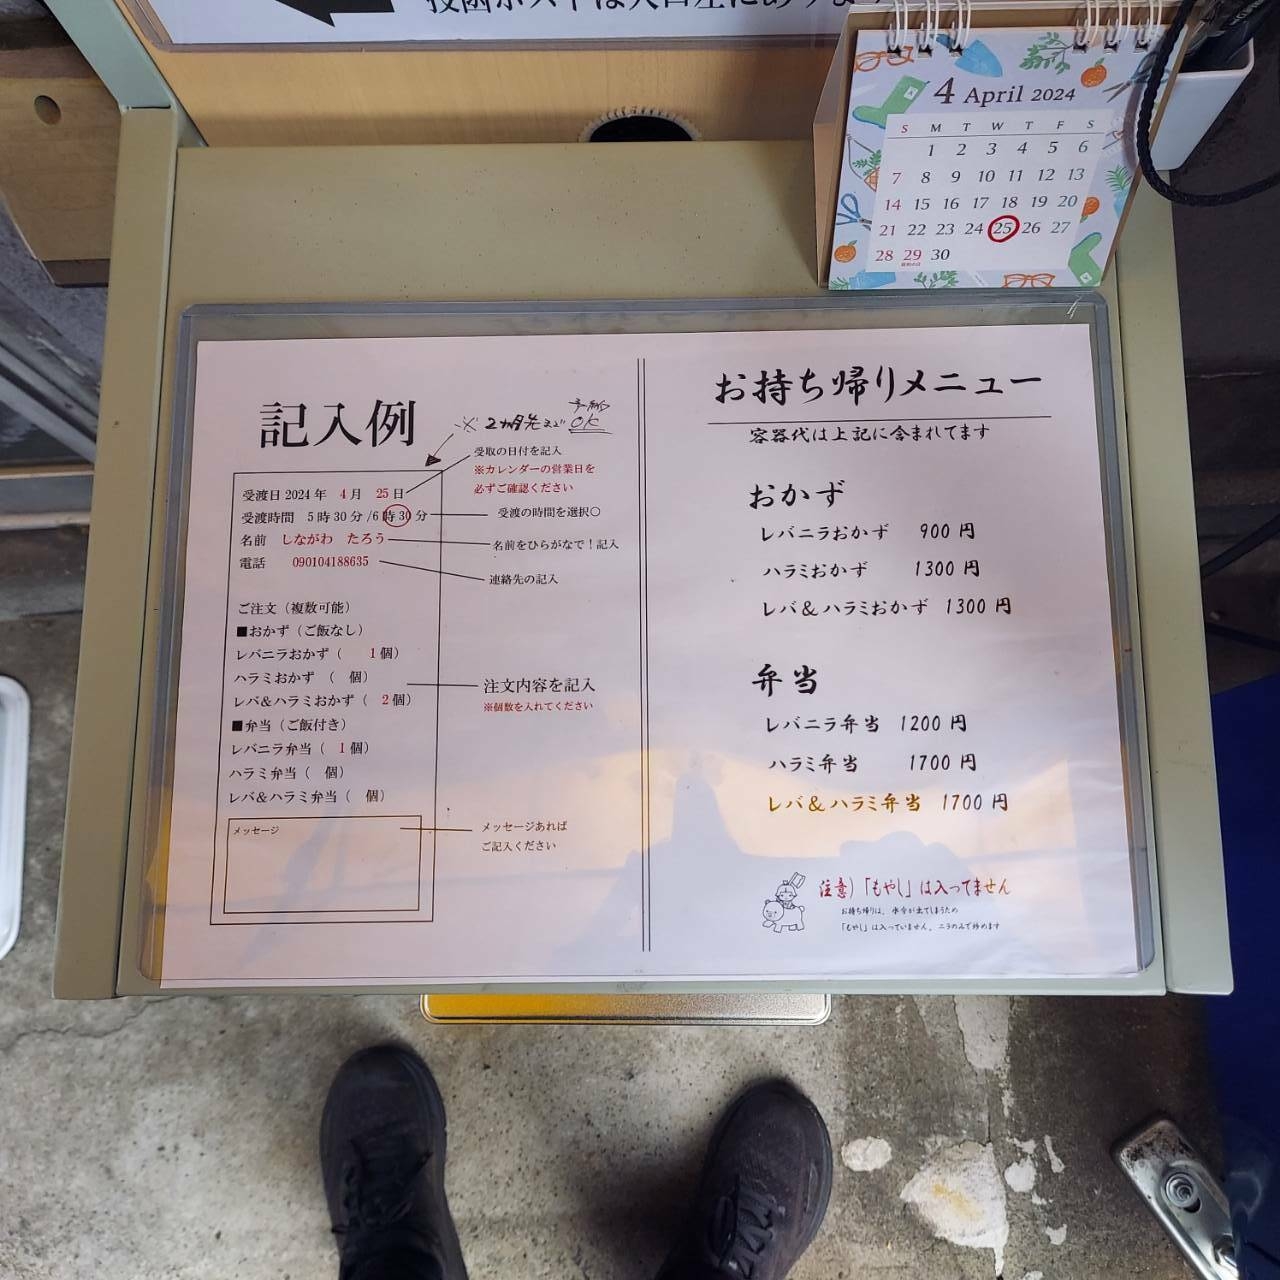 4 April 2024
S M T W T F S
1 2 3 4 5 6
7 8 9 10 11 12 13
14 15 16 17 18 19 20
21 22 23 24 25 26 27
28 29 30
記入例
※2ヵ月先まで
予約
OK
受取の日付を記入
※カレンダーの営業日を
必ずご確認ください
受渡日 2024 年 4 月 25 日
受渡時間 5 時 30 分 /6 時 30 分
受渡の時間を選択〇
名前 しながわ たろう
名前をひらがなで!記入
電話 090104188635
連絡先の記入
ご注文(複数可能)
■おかず(ご飯なし)
レバニラおかず( 1 個)
ハラミおかず ( 個)
レバ&ハラミおかず( 2 個)
注文内容を記入
※個数を入れてください
■弁当(ご飯付き)
レバニラ弁当( 1 個)
ハラミ弁当( 個)
レバ&ハラミ弁当( 個)
メッセージ
メッセージあれば
ご記入ください
お持ち帰りメニュー
容器代は上記に含まれてます
おかず
レバニラおかず 900 円
ハラミおかず 1300 円
レバ&ハラミおかず 1300 円
弁当
レバニラ弁当 1200 円
ハラミ弁当 1700 円
レバ&ハラミ弁当 1700 円
注意)「もやし」は入ってません
お持ち帰りは、水分が出てしまうため
「もやし」は入っていません。ニラのみで炒めます